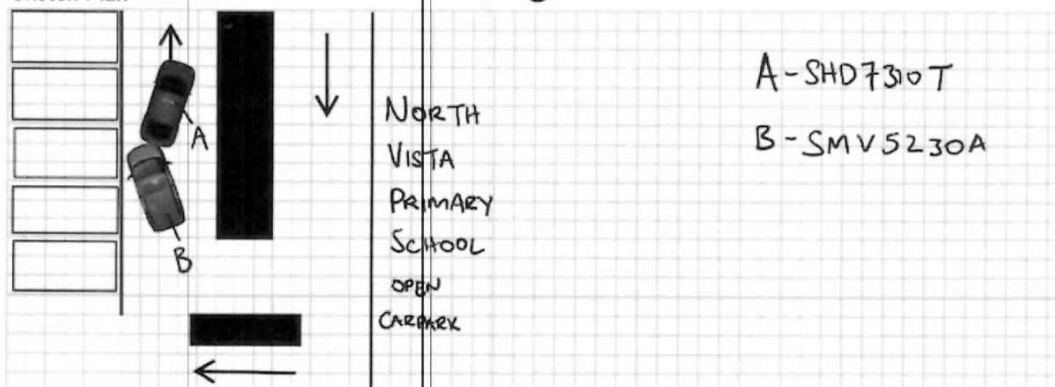 A
B
NORTH
VISTA
PRIMARY
SCHOOL
OPEN
CARPARK
A-SHD7310T
B-SMV5230A